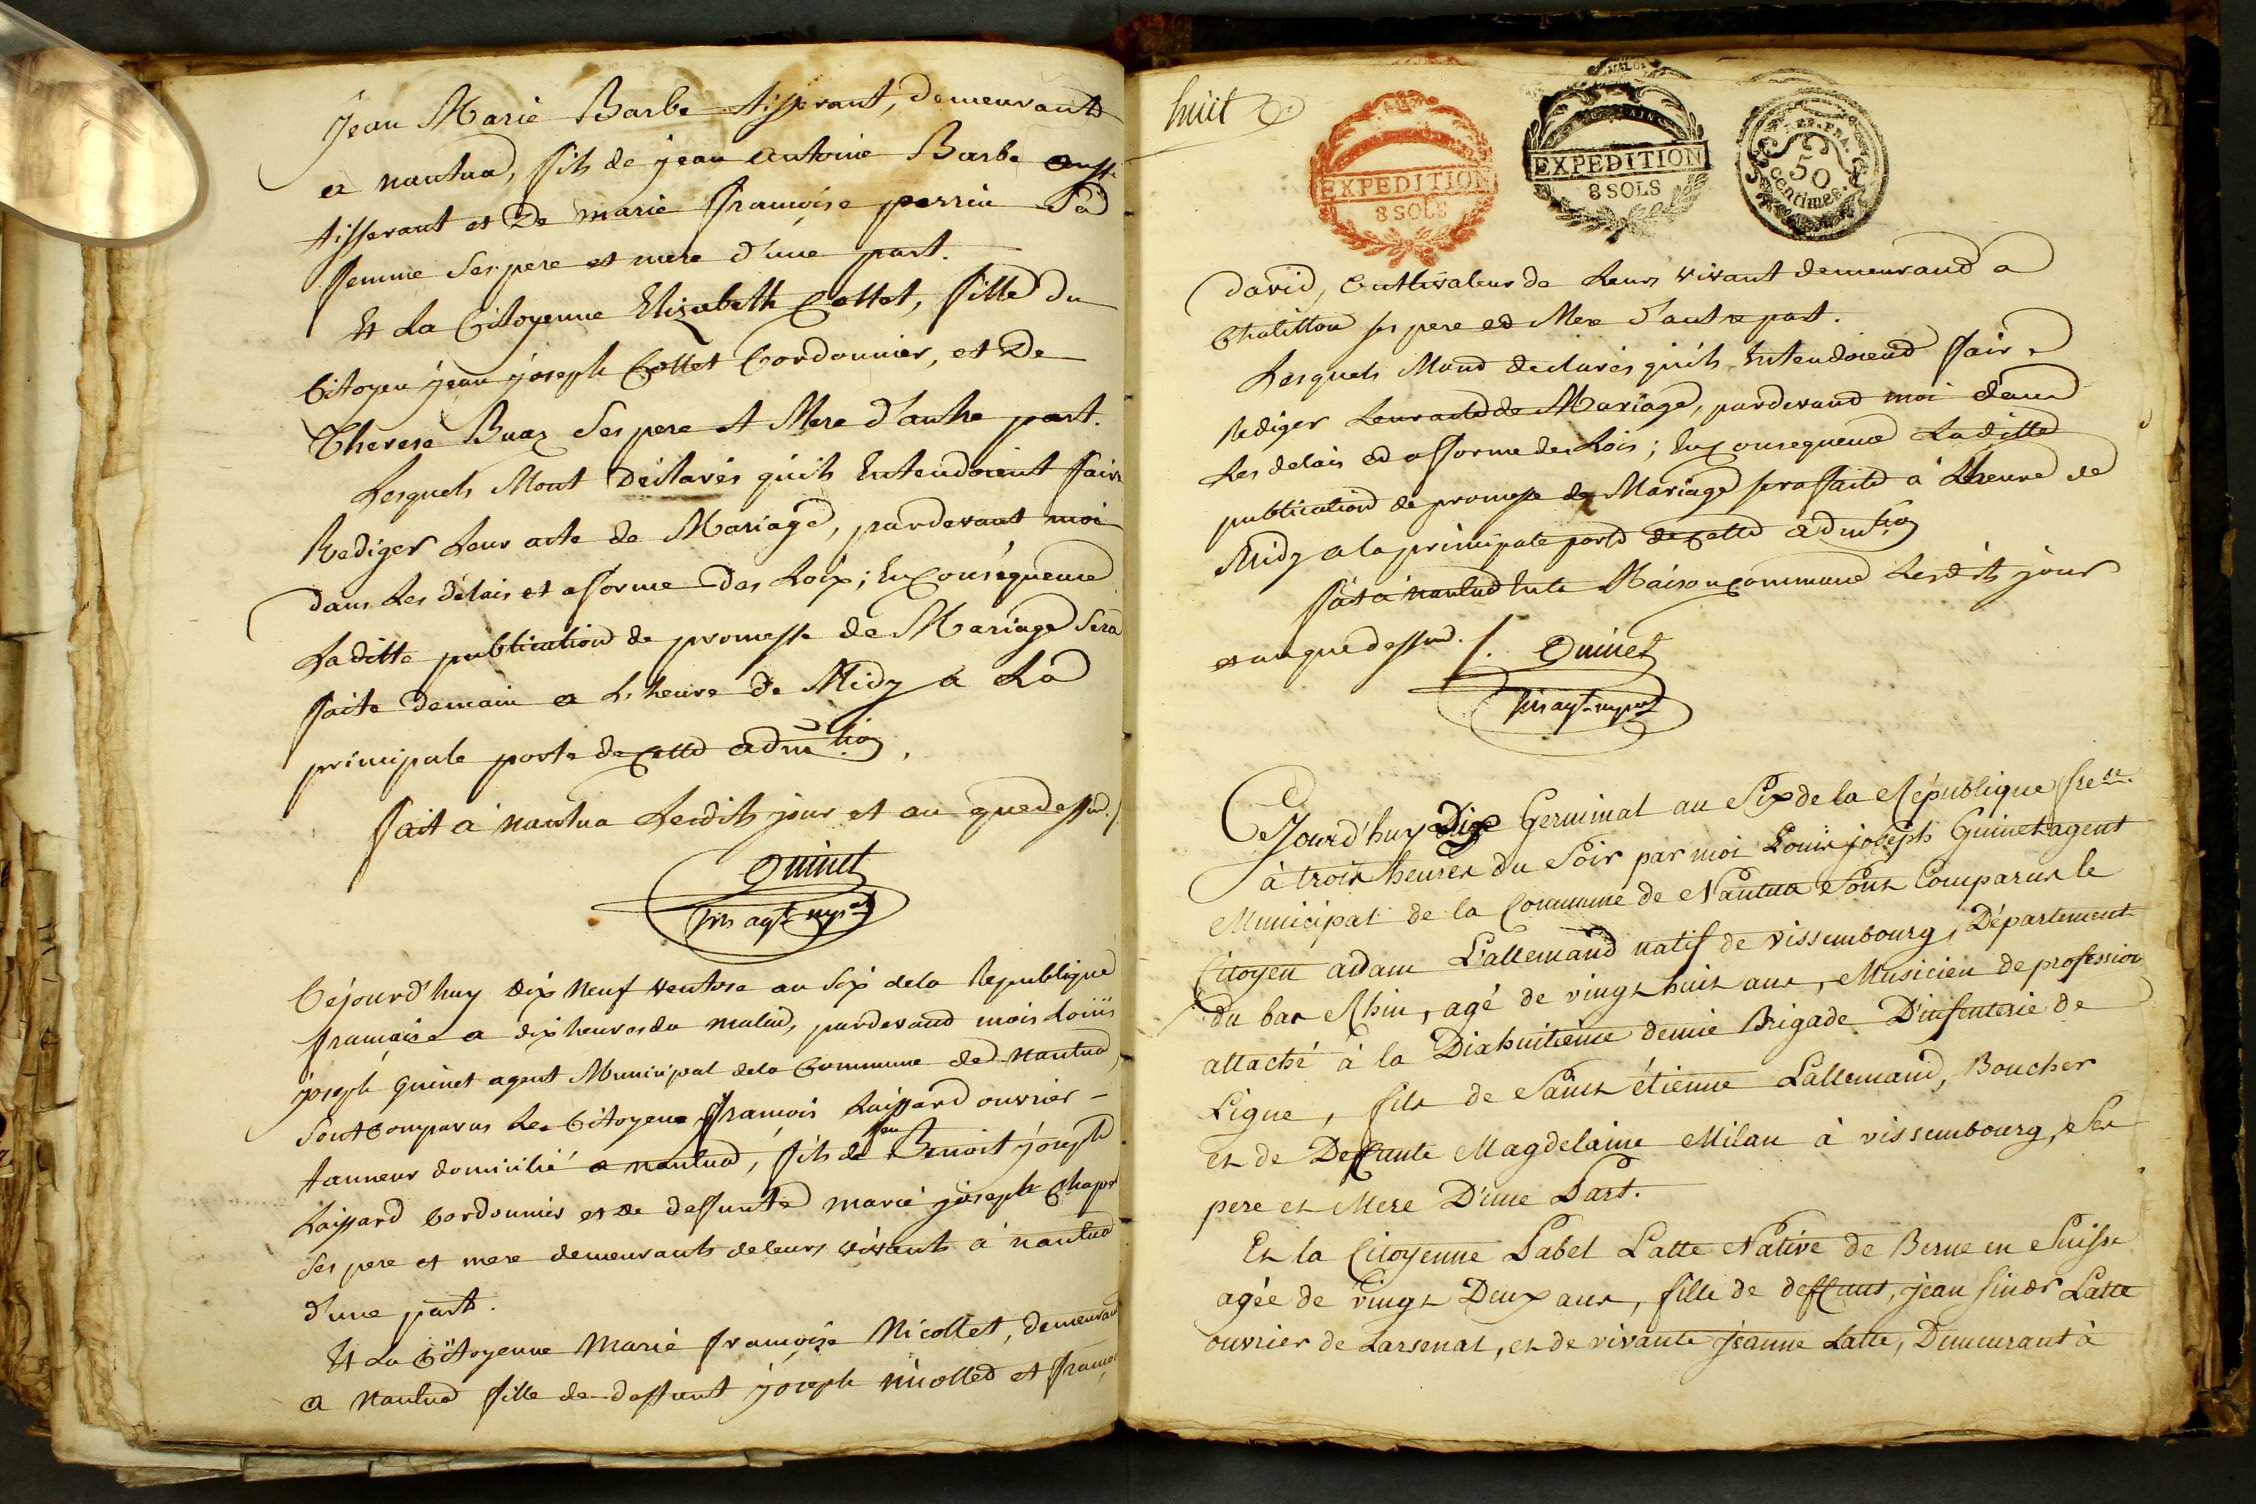 Jean Marie Barbe tisserant, demeurants
a nantua, fils de jean antoine Barbe aussi
tisserant et De marie francoise perrin Sa
femme Ses pere et mere d'une part.
Et La Citoyenne Elizabeth Collet, fille du
Citoyen jean joseph Collet Cordonnier, et De
Therese Buaz Ses pere et Mere d'autre part.
Lesquels Mont Déclarés quils Entendoient faire
Rediger Leur acte de Mariage, pardevant moi
dans Les délais et a forme Des Loix; En Conséquence
La ditte publication de promesse de Mariage Sera
faite demain a L'heure de Midy a La
principale porte de cette adm.tion.
fait a nantua Lesdits jour et an que dessus./.
Guinet
agt. mpal
Cejourd'huy dix neuf ventose an Six de la Republique
francaise a dix heures du matin, pardevand mois Louis
joseph guinet agent Municipal de la Commune de nantua,
Sont Comparus Le Citoyens francois Laissard ouvrier -
tanneur domicilié a nantua, fils de feu Benoit joseph
Laissard Cordonnier et de deffunte marie joseph Chapel
Ses pere et mere demeurants de leurs vivants a nantua
d'une part.
Et La Citoyenne Marie francoise Nicollet, demeurant
a Nantua fille de deffunt joseph nicolled et francoi
huit
EXPEDITION
8 SOLS
EXPEDITION
8 SOLS
REP. FRA.
50
centimes
david, Cultivateur de Leurs vivant demeurand a
Chatillon ses pere ed Mere d'autre part.
Lesquels Mond declarés quils Entendoiend faire
Rediger Leur acte de Mariage, pardevand moi dans
Les delais ed a forme des Lois; En Consequence La ditte
publication de promesse de Mariage sera faite a L'heure de
Midy a la principale porte de cette adm.tion
fait a nantua En la Maison commune Lesdits jour
et an que dessus. /. Guinet
agt. mpal
Cejourd'huy Dix Germinal an Six de la République fse.
à trois heures du Soir par moi Louis joseph Guinet agent
Municipal de la Commune de Nantua Sont Comparus le
Citoyen adam L'allemand natif de vissembourg, Département
du bas Rhin, agé de vingt huit ans, Musicien de profession
attaché à la Dixhuitieme demie Brigade D'infenterie de
Ligne, fils de Saint étienne Lallemand, Boucher
et de Deffunte Magdelaine Milan à vissembourg, Ses
pere et Mere D'une Part.
Et la Citoyenne Babet Latte Native de Berne en Suisse
agée de vingt Deux ans, fille de deffunt, jean Latte
ouvrier de Larsenat, et de vivante jeanne Latte, Demeurant à